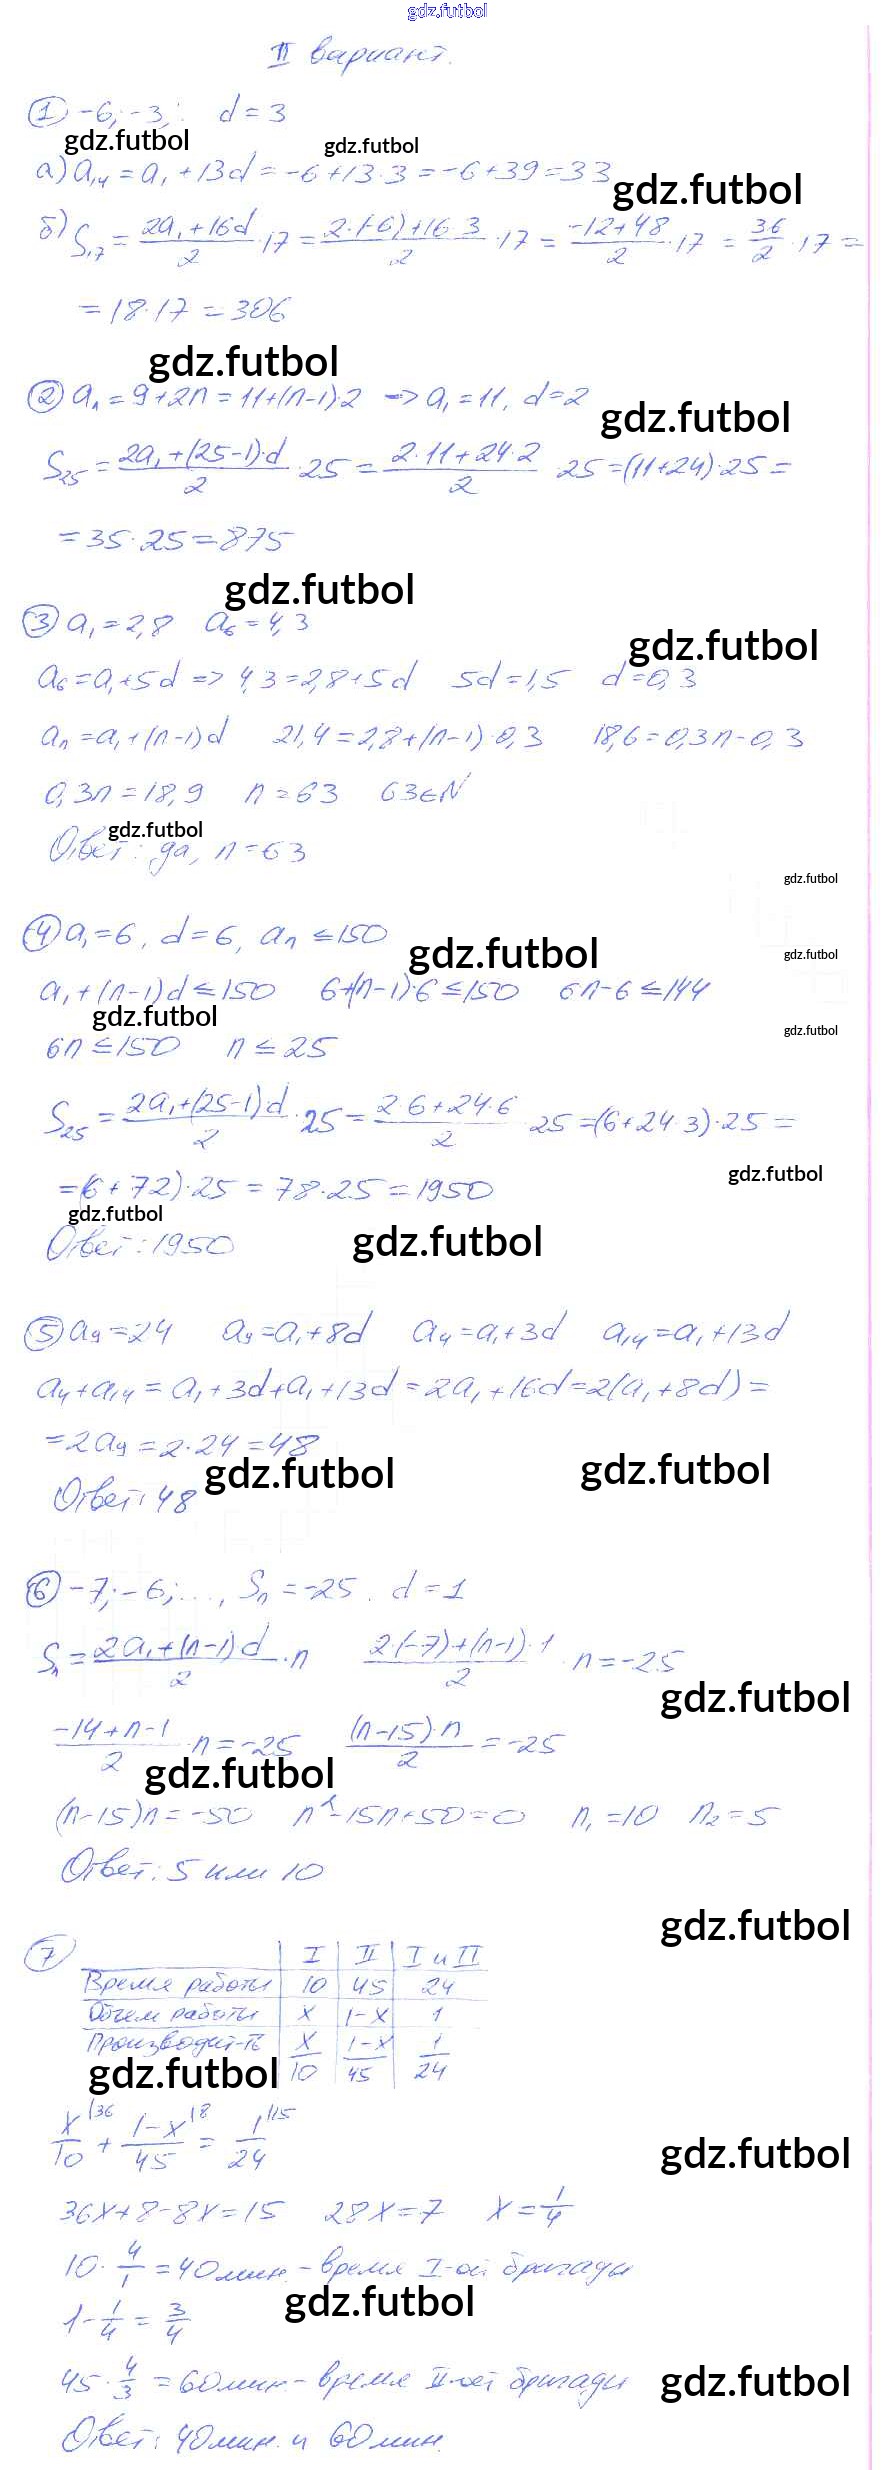 gdz.futbol
II вариант.
① -6; -3; : d = 3
gdz.futbol
gdz.futbol
а) a₁₄ = a₁ + 13d = -6 + 13·3 = -6 + 39 = 33
gdz.futbol
б) S₁₇ = (2a₁ + 16d)/2 · 17 = (2·(-6) + 16·3)/2 · 17 = (-12 + 48)/2 · 17 = 36/2 · 17 =
= 18·17 = 306
gdz.futbol
② aₙ = 9 + 2n = 11 + (n-1)·2 => a₁ = 11, d = 2
gdz.futbol
S₂₅ = (2a₁ + (25-1)·d)/2 · 25 = (2·11 + 24·2)/2 · 25 = (11 + 24)·25 =
= 35·25 = 875
gdz.futbol
③ a₁ = 2,8 a₆ = 4,3
gdz.futbol
a₆ = a₁ + 5d => 4,3 = 2,8 + 5d 5d = 1,5 d = 0,3
aₙ = a₁ + (n-1)d 21,4 = 2,8 + (n-1)·0,3 18,6 = 0,3n - 0,3
0,3n = 18,9 n = 63 63 ∈ N
gdz.futbol
Ответ: да, n = 63
gdz.futbol
④ a₁ = 6, d = 6, aₙ ≤ 150
gdz.futbol
gdz.futbol
a₁ + (n-1)d ≤ 150 6 + (n-1)·6 ≤ 150 6n - 6 ≤ 144
gdz.futbol
gdz.futbol
6n ≤ 150 n ≤ 25
S₂₅ = (2a₁ + (25-1)d)/2 · 25 = (2·6 + 24·6)/2 · 25 = (6 + 24·3)·25 =
gdz.futbol
= (6 + 72)·25 = 78·25 = 1950
gdz.futbol
Ответ: 1950
gdz.futbol
⑤ a₉ = 24 a₉ = a₁ + 8d a₄ = a₁ + 3d a₁₄ = a₁ + 13d
a₄ + a₁₄ = a₁ + 3d + a₁ + 13d = 2a₁ + 16d = 2(a₁ + 8d) =
= 2a₉ = 2·24 = 48
gdz.futbol
gdz.futbol
Ответ: 48
⑥ -7; -6; ..., Sₙ = -25. d = 1
Sₙ = (2a₁ + (n-1)d)/2 · n (2·(-7) + (n-1)·1)/2 · n = -25
gdz.futbol
(-14 + n - 1)/2 · n = -25 ((n-15)·n)/2 = -25
gdz.futbol
(n-15)n = -50 n² - 15n + 50 = 0 n₁ = 10 n₂ = 5
Ответ: 5 или 10
gdz.futbol
⑦ I II I и II
Время работы 10 45 24
Объем работы x 1-x 1
Производит-ть x/10 (1-x)/45 1/24
gdz.futbol
x/10 |36 + (1-x)/45 |8 = 1/24 |15
gdz.futbol
36x + 8 - 8x = 15 28x = 7 x = 1/4
10 · 4/1 = 40 мин. - время I-ой бригады
gdz.futbol
1 - 1/4 = 3/4
45 · 4/3 = 60 мин. - время II-ой бригады
gdz.futbol
Ответ: 40 мин. и 60 мин.